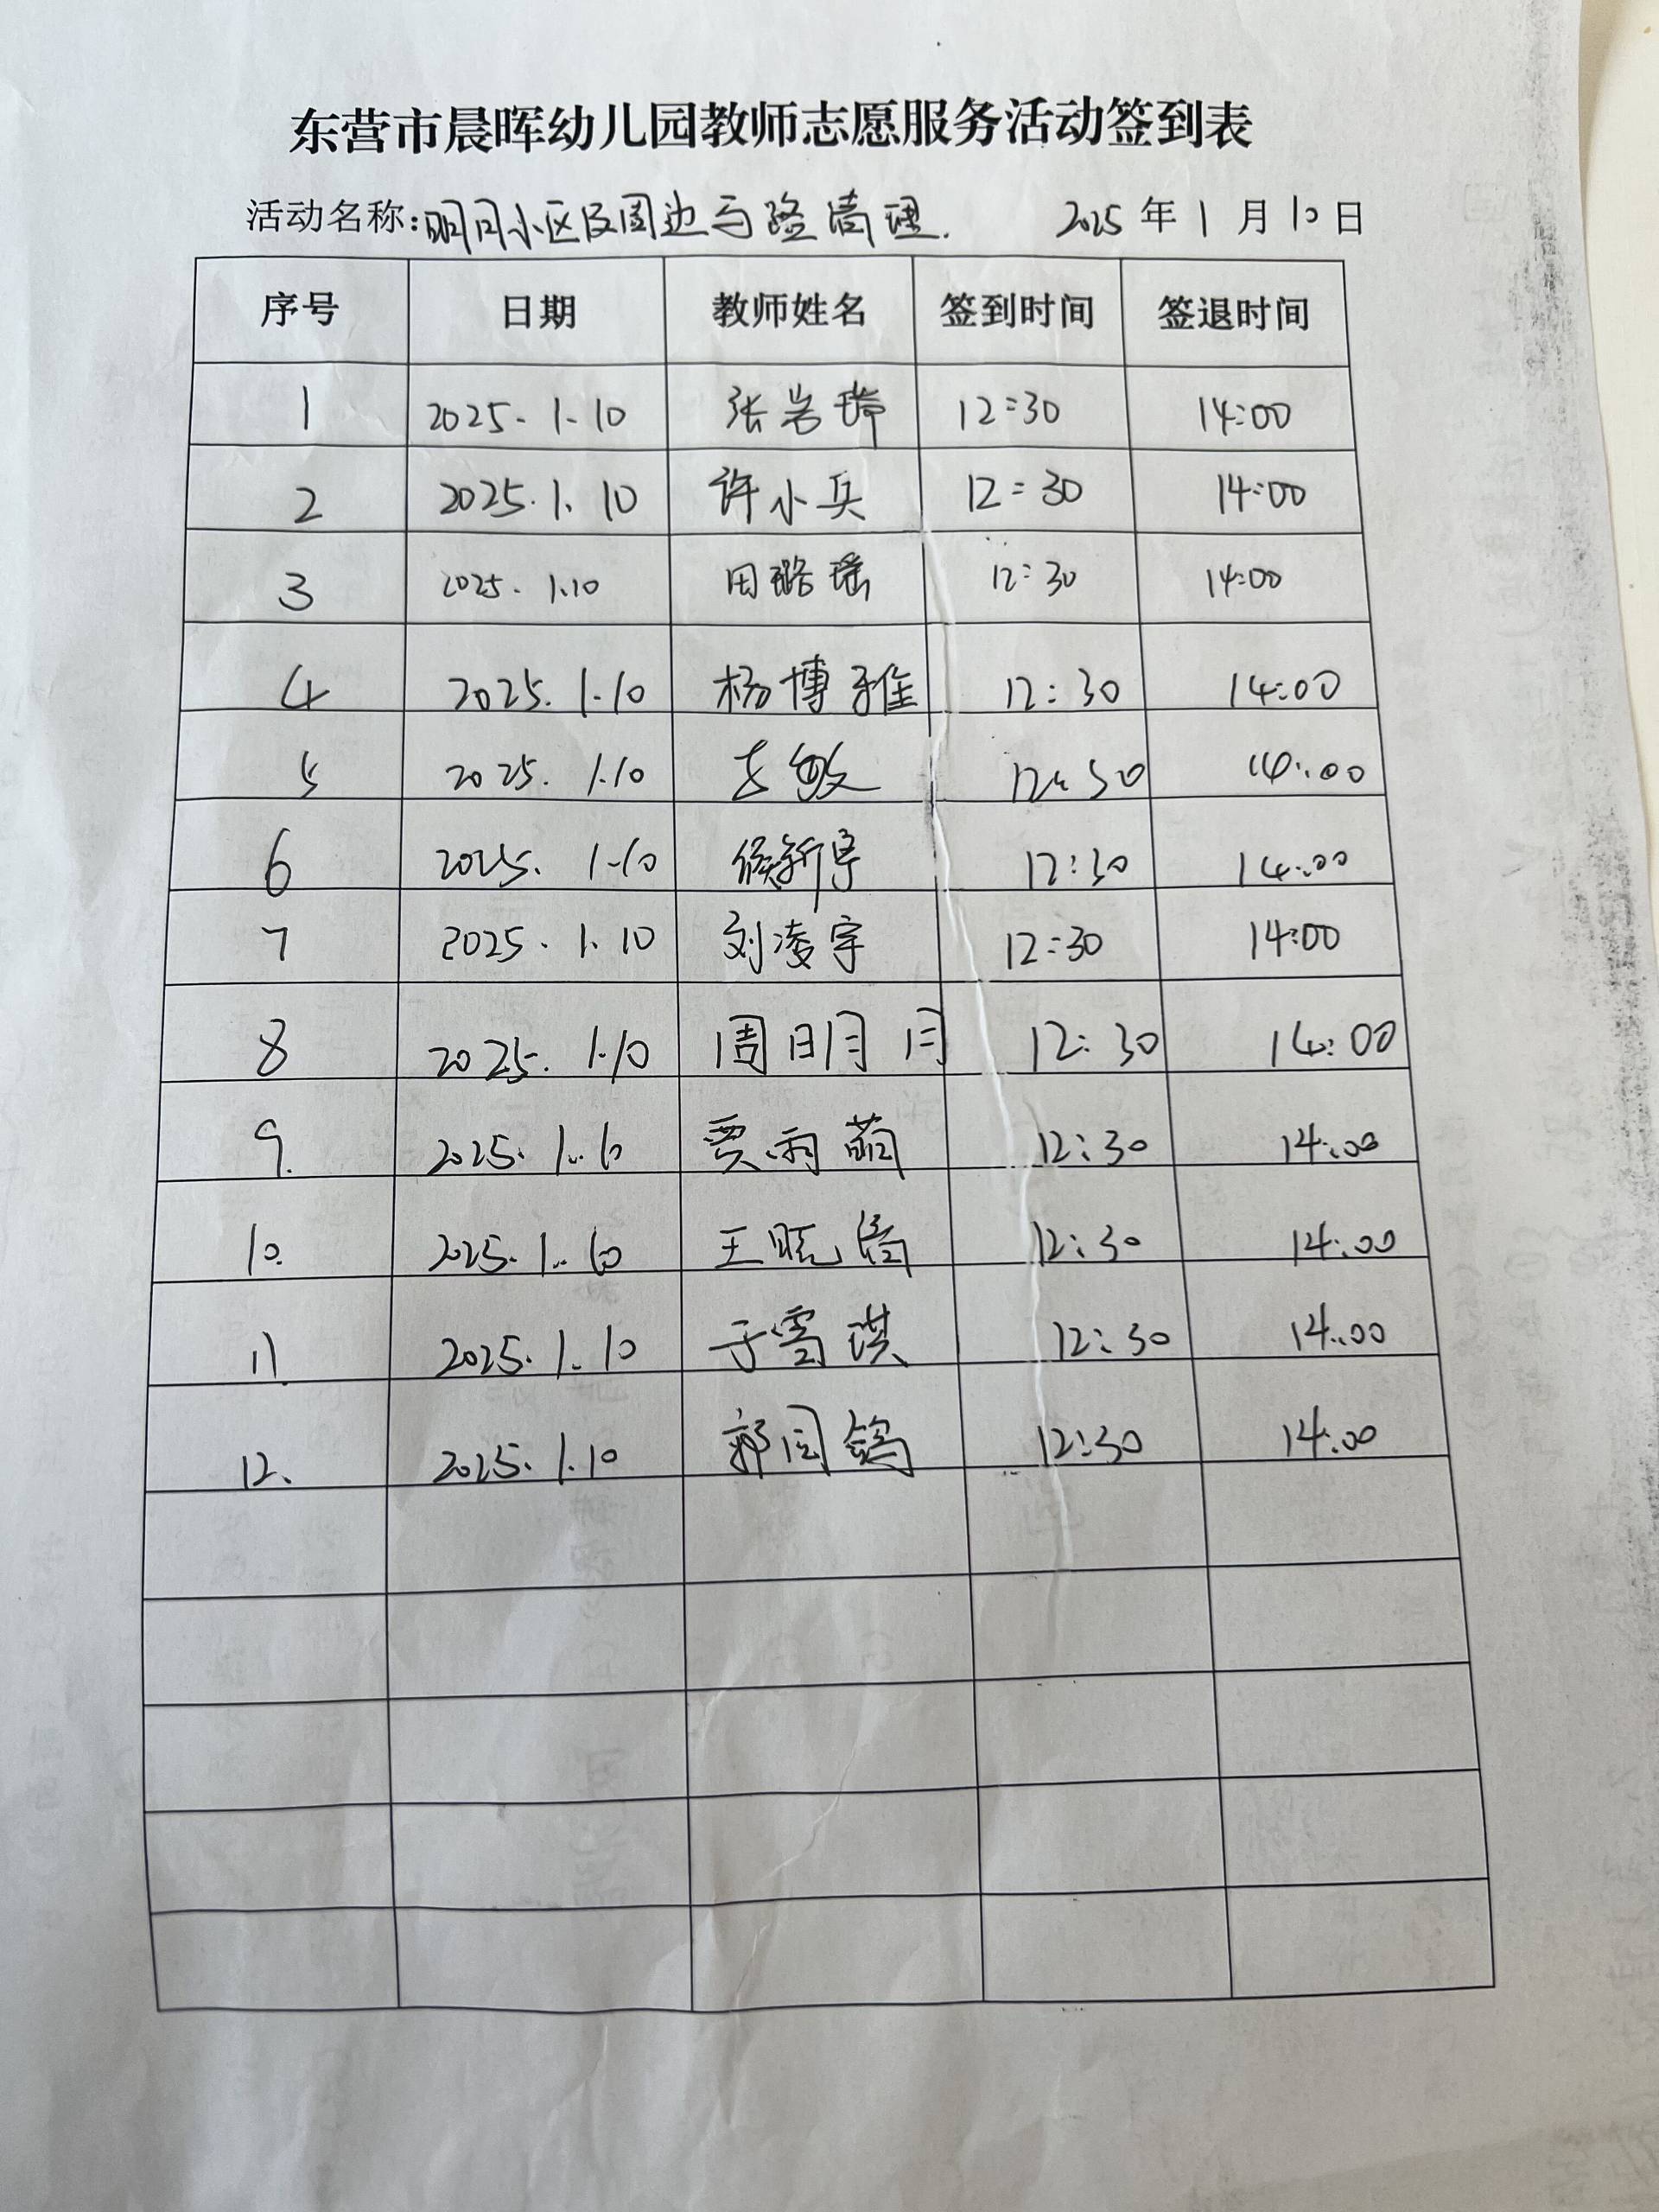 东营市晨晖幼儿园教师志愿服务活动签到表
活动名称:明月小区及周边马路清理. 2025年1月10日
序号 日期 教师姓名 签到时间 签退时间
1 2025.1.10 张岩 12:30 14:00
2 2025.1.10 许小兵 12:30 14:00
3 2025.1.10 田璐瑶 12:30 14:00
4 2025.1.10 杨博雅 12:30 14:00
5 2025.1.10 敏 12:30 14:00
6 2025.1.10 侯新宇 12:30 14:00
7 2025.1.10 刘凌宇 12:30 14:00
8 2025.1.10 周明月 12:30 14:00
9. 2025.1.10 贾雨萌 12:30 14:00
10. 2025.1.10 王晓 12:30 14:00
11. 2025.1.10 于雪琪 12:30 14:00
12. 2025.1.10 郭 12:30 14:00